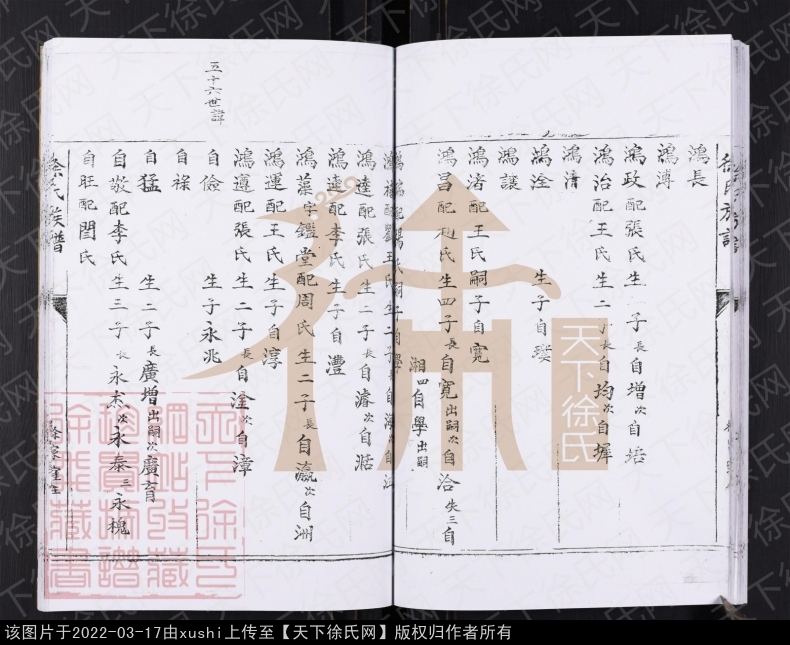 鴻長
鴻溥
鴻政配張氏生二子長自增次自培
鴻治配王氏生二子長自均次自墀
鴻清
鴻淦 生子自璞
鴻讓
鴻渚配王氏嗣子自寬
鴻昌配趙氏生四子長自寬出嗣次自洽失三自
湘四自學出嗣
鴻達配張氏生二子長自濬次自湉
鴻達配李氏生子自灃
鴻藻字鑑堂配周氏生二子長自瀛次自洲
鴻運配王氏生子自淳
鴻遵配張氏生二子長自淦次自漳
五十六世諱
自儉 生子永兆
自祿
自猛 生二子長廣增出嗣次廣育
自敬配李氏生三子長永杰次永泰三永槐
自旺配閆氏
徐氏族譜
徐氏族譜
天下徐氏
天下徐氏网
该图片于2022-03-17由xushi上传至【天下徐氏网】版权归作者所有